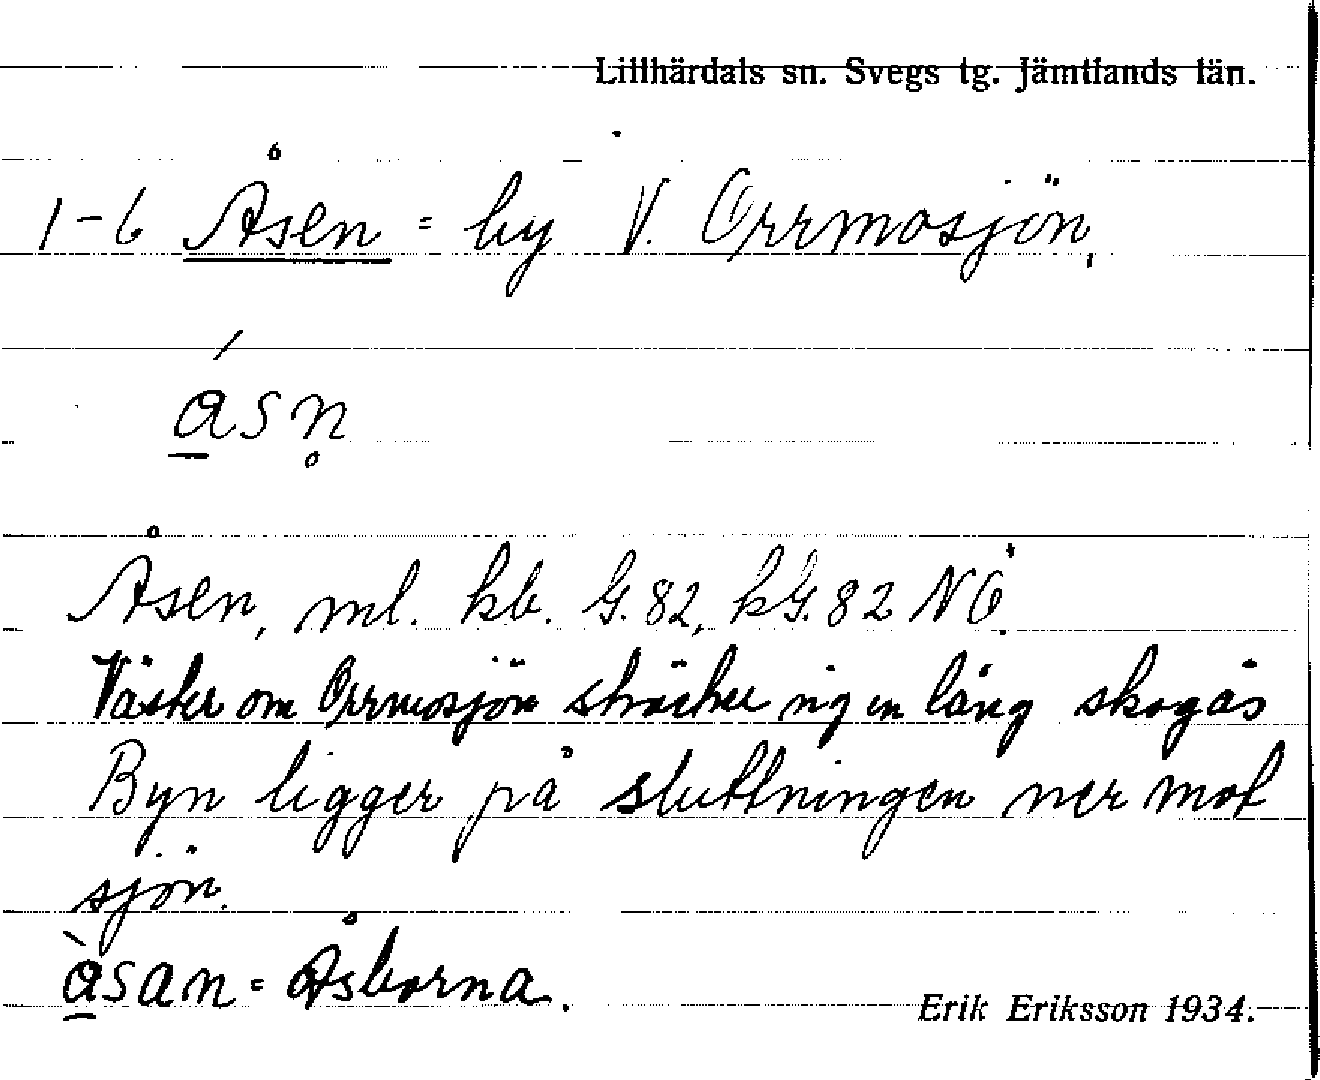 Lillhärdals sn. Svegs tg. Jämtlands län.
1-6 Åsen = by V. Orrmosjön,
á̱sn̥
Åsen, ml. kb. G. 82, kG. 82 NÖ.
Väster om Orrmosjön sträcker sig en lång skogås
Byn ligger på sluttningen ner mot
sjön.
à̱san = Åsborna.
Erik Eriksson 1934.